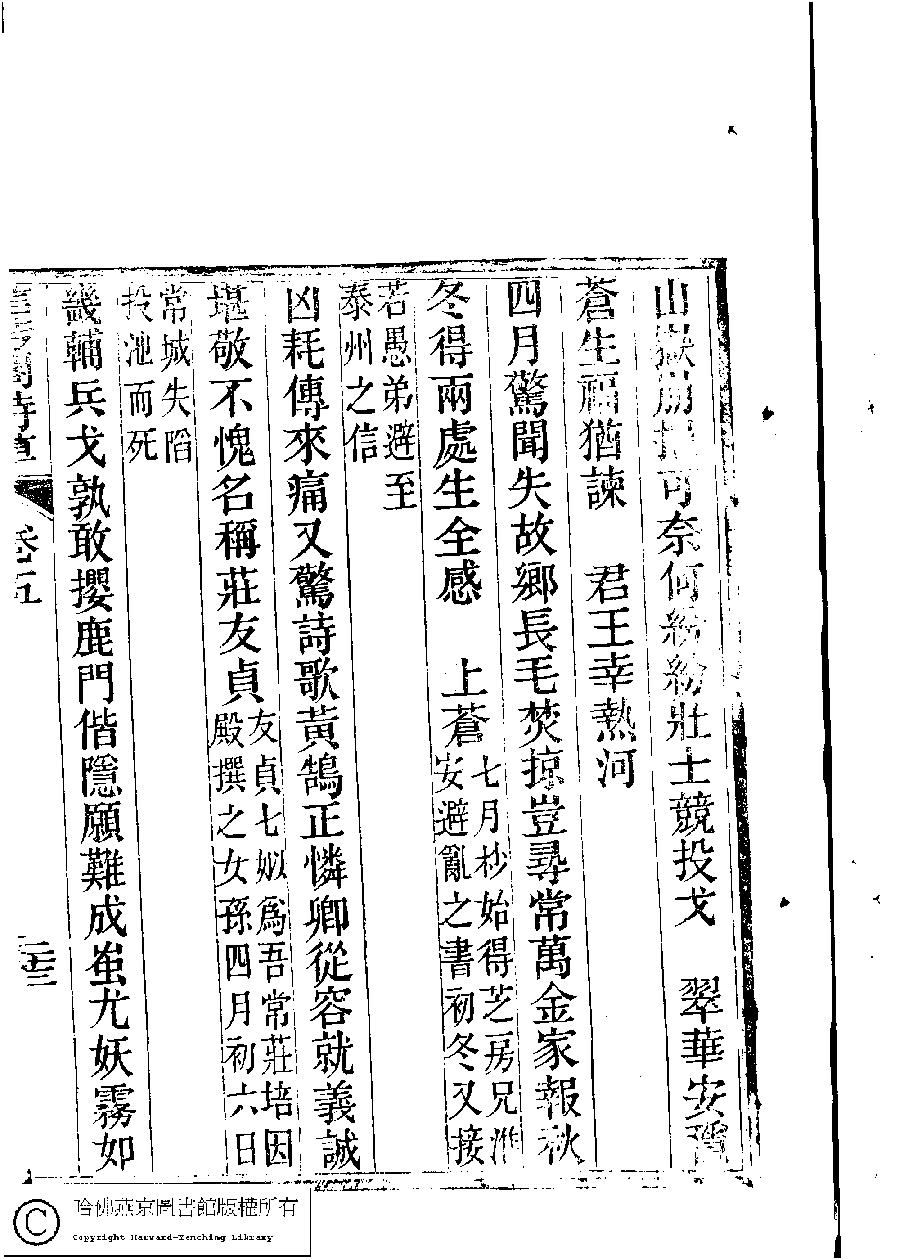 山嶽崩摧可奈何紛紛壯士競投戈　翠華安
蒼生福猶諫　君王幸熱河
四月驚聞失故鄉長毛焚掠豈尋常萬金家報秋
冬得兩處生全感　上蒼七月杪始得芝房兄淮
安避亂之書初冬又接
若愚弟避至
泰州之信
凶耗傳來痛又驚詩歌黃鵠正憐卿從容就義誠
堪敬不愧名稱莊友貞友貞七姒爲吾常莊培因
殿撰之女孫四月初六日
常城失陷
投池而死
畿輔兵戈孰敢攖鹿門偕隱願難成蚩尤妖霧如
詩草
卷五
二十三
哈佛燕京圖書館版權所有
Copyright Harvard-Yenching Library